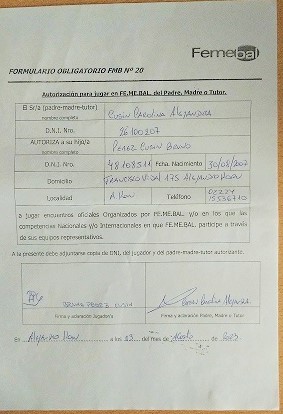 Femebal
FORMULARIO OBLIGATORIO FMB Nº 20
Autorización para jugar en FE.ME.BAL. del Padre, Madre o Tutor.
El Sr/a (padre-madre-tutor) Cusin Carolina Alejandra
nombre completo
D.N.I. Nro. 26100207
AUTORIZA a su hijo/a Perez Cusin Bruno
nombre completo
D.N.I. Nro. 48108511 Fcha. Nacimiento 30/08/2007
Domicilio Francisco Vidal 175 Alejandro Korn
Localidad A. Korn Teléfono 02227 15536710
a jugar encuentros oficiales Organizados por FE.ME.BAL y/o en los que las
competencias Nacionales y/o Internacionales en que FE.ME.BAL. participe a través
de sus equipos representativos.
A la presente debe adjuntarse copia de DNI, del jugador y del padre-madre-tutor autorizante.
Cusin Carolina Alejandra
Firma y aclaración Jugador/a Firma y aclaración Padre, Madre o Tutor.
En Alejandro Korn a los 23 del mes de de 2023